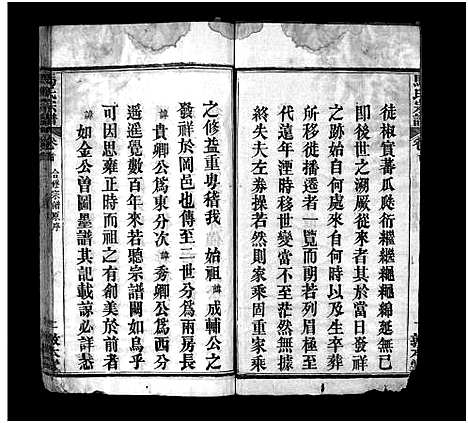 徒椒實蕃瓜瓞衍繼繼繩繩綿延無已
即後世之溯厥從來者其於當日發祥
之跡始自何處來自何時以及生卒葬
遷徙播遷者一覽而明若列眉極至
代遠年湮時移世變當不至茫然無據
終失夫左券操若然則家乘固重家乘
之修益重粵稽我 始祖諱成輔公之
發祥於岡邑也傳至二世分為兩房長
諱貴卿公為東分次諱秀卿公為西分
遙遙覺數百年來若聽宗譜闕如烏乎
可因思雍正時而祖之有創美於前者
諱如金公曾圖墨譜其記載諒必詳悉
氏宗譜 卷首 合修宗譜原序